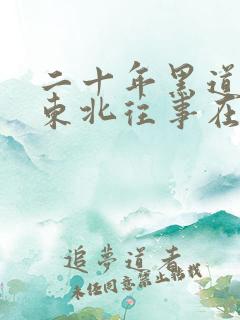 二十年黑道
东北往事在
追夢道者
未任同意禁止転载